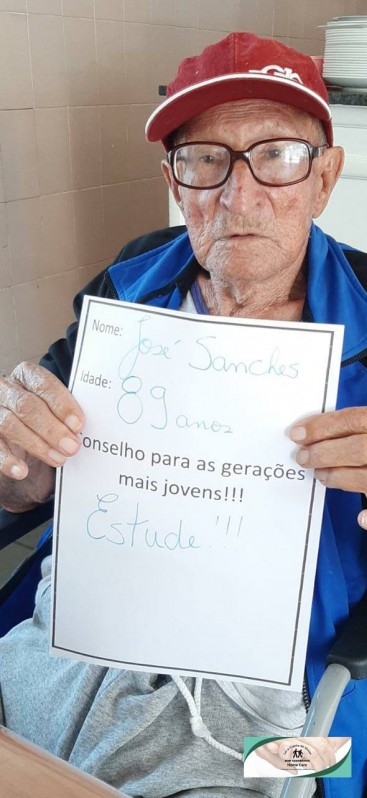 Nome: José Sanches
Idade: 89 anos
Conselho para as gerações
mais jovens!!!
Estude!!!